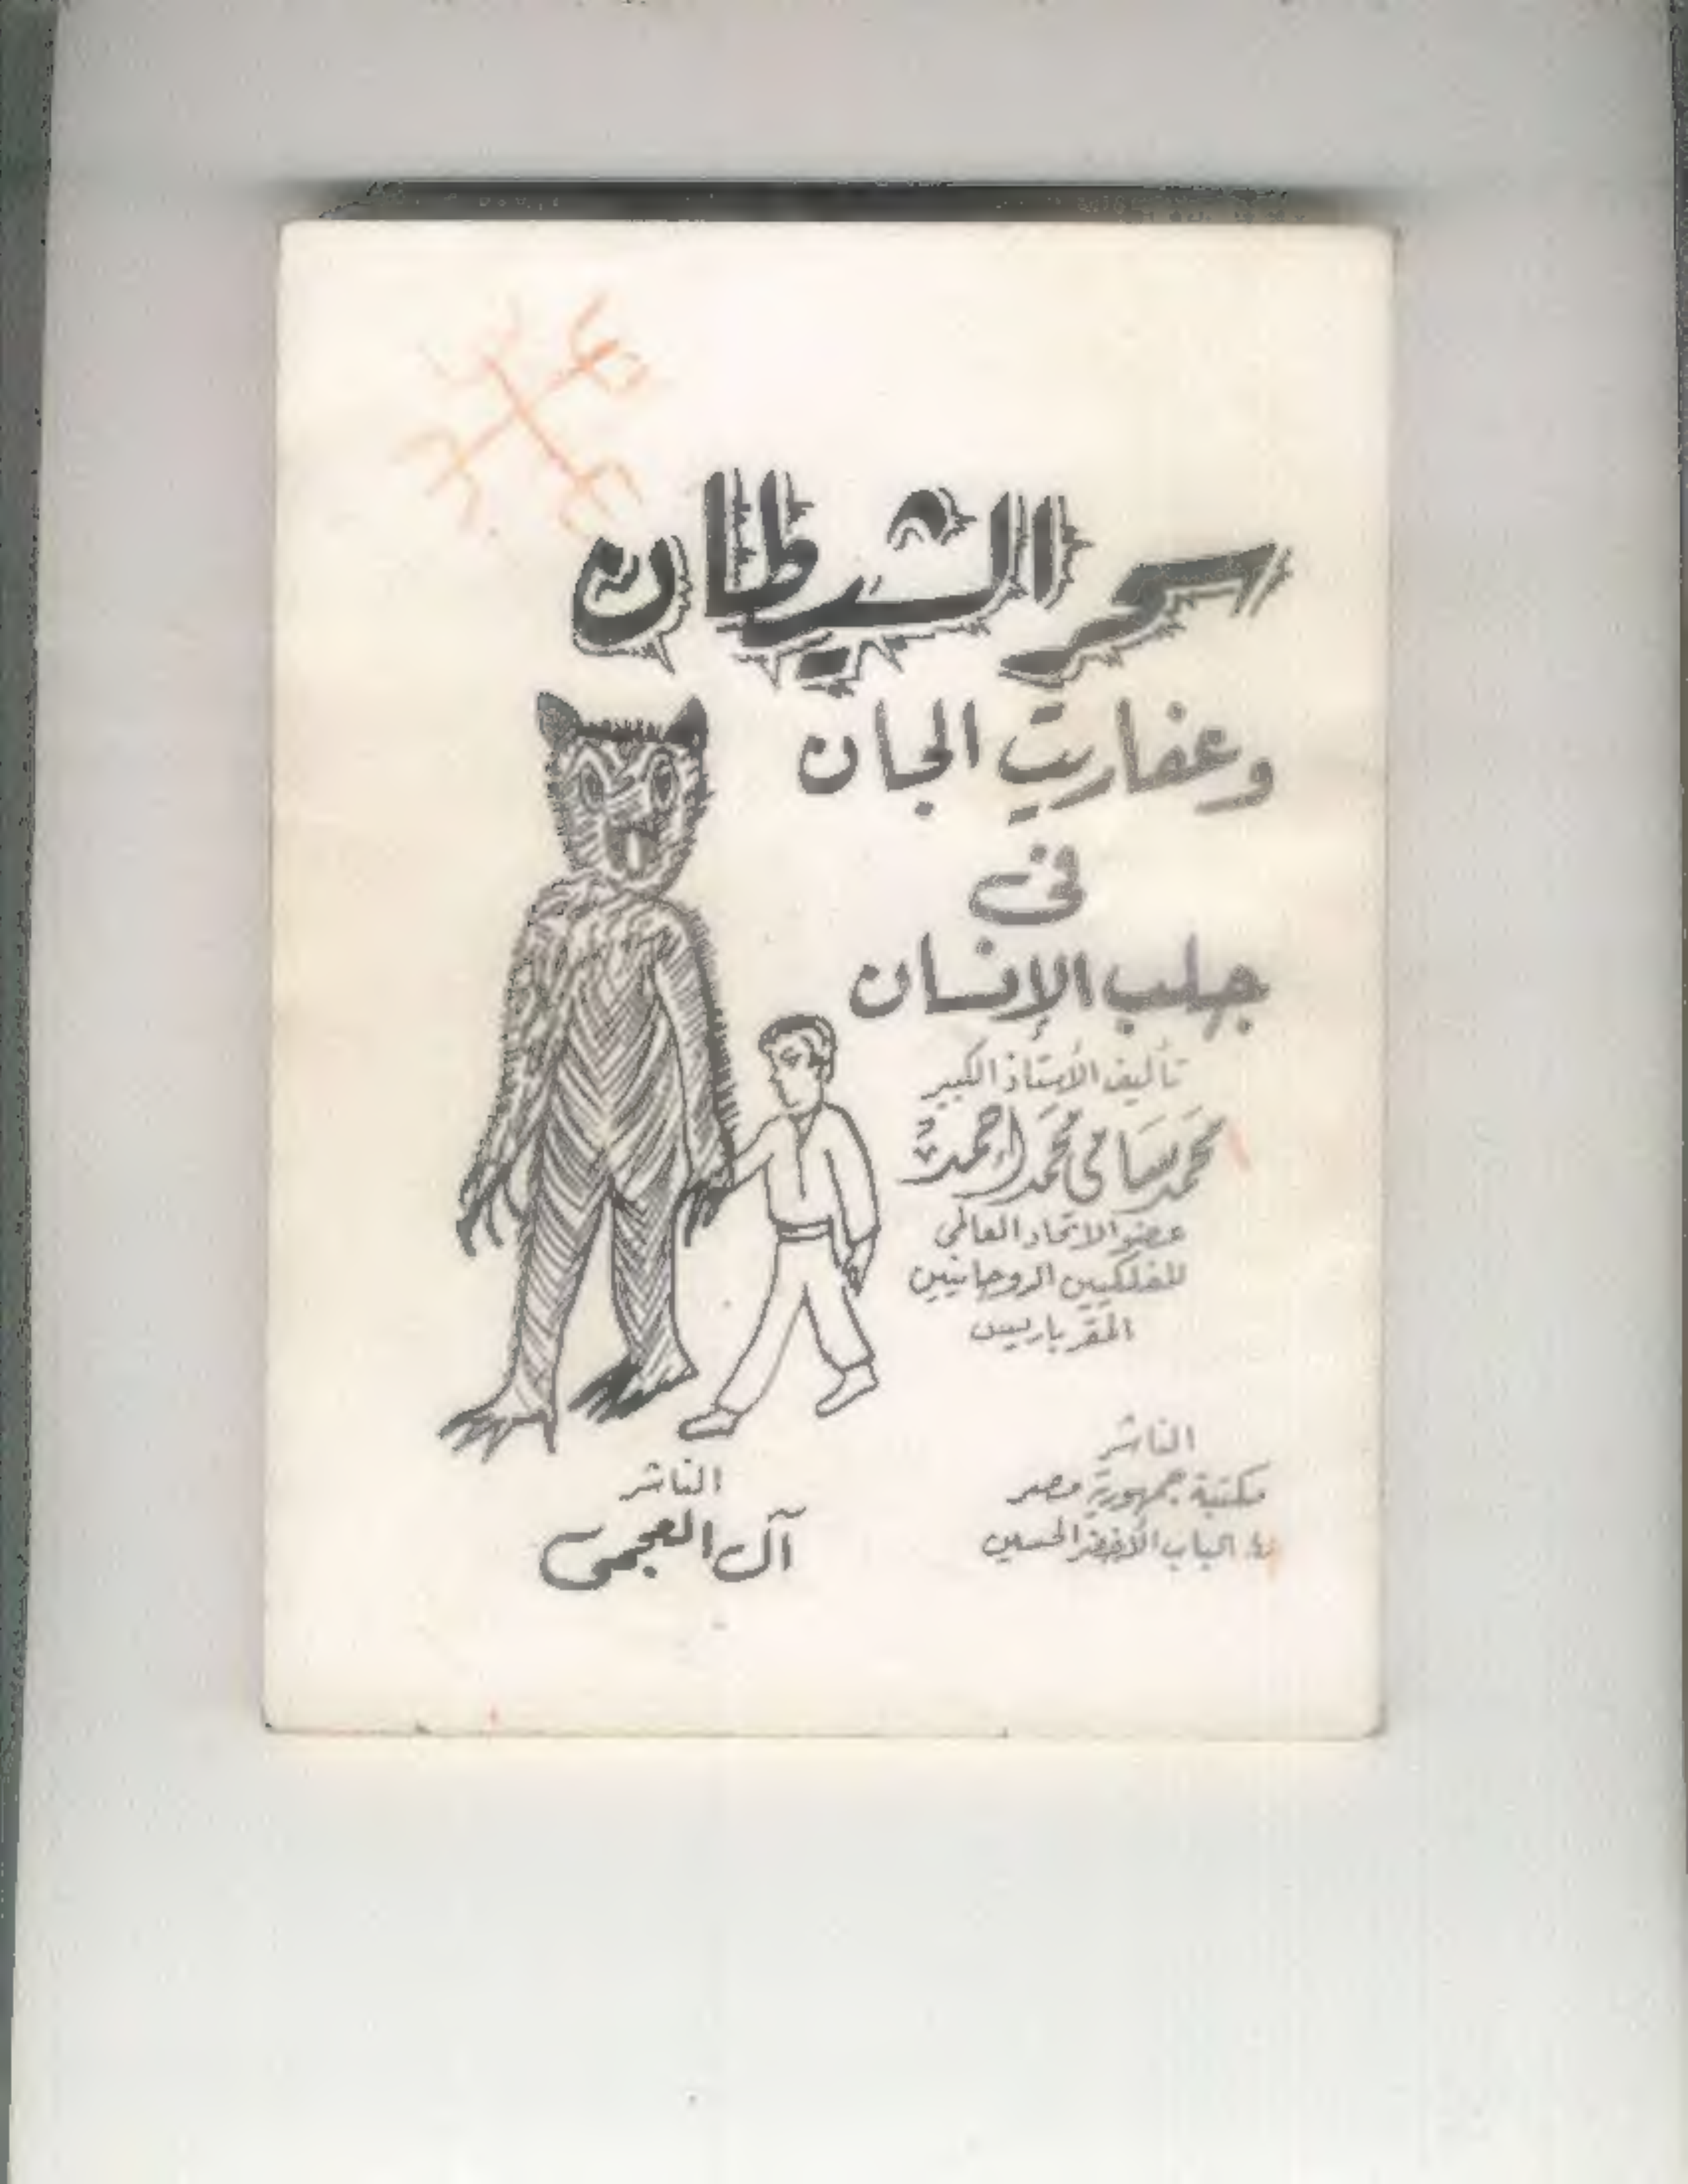 سحر الشيطان
وعفاريت الجان
فى
جلب الإنسان
تأليف الأستاذ الكبير
محمد سامى محمد احمد
عضو الاتحاد العالمى
للفلكيين الروحانيين
المقر باريس
الناشر
مكتبة جمهورية مصر
الباب الأخضر الحسين
الناشر
آل العجمى